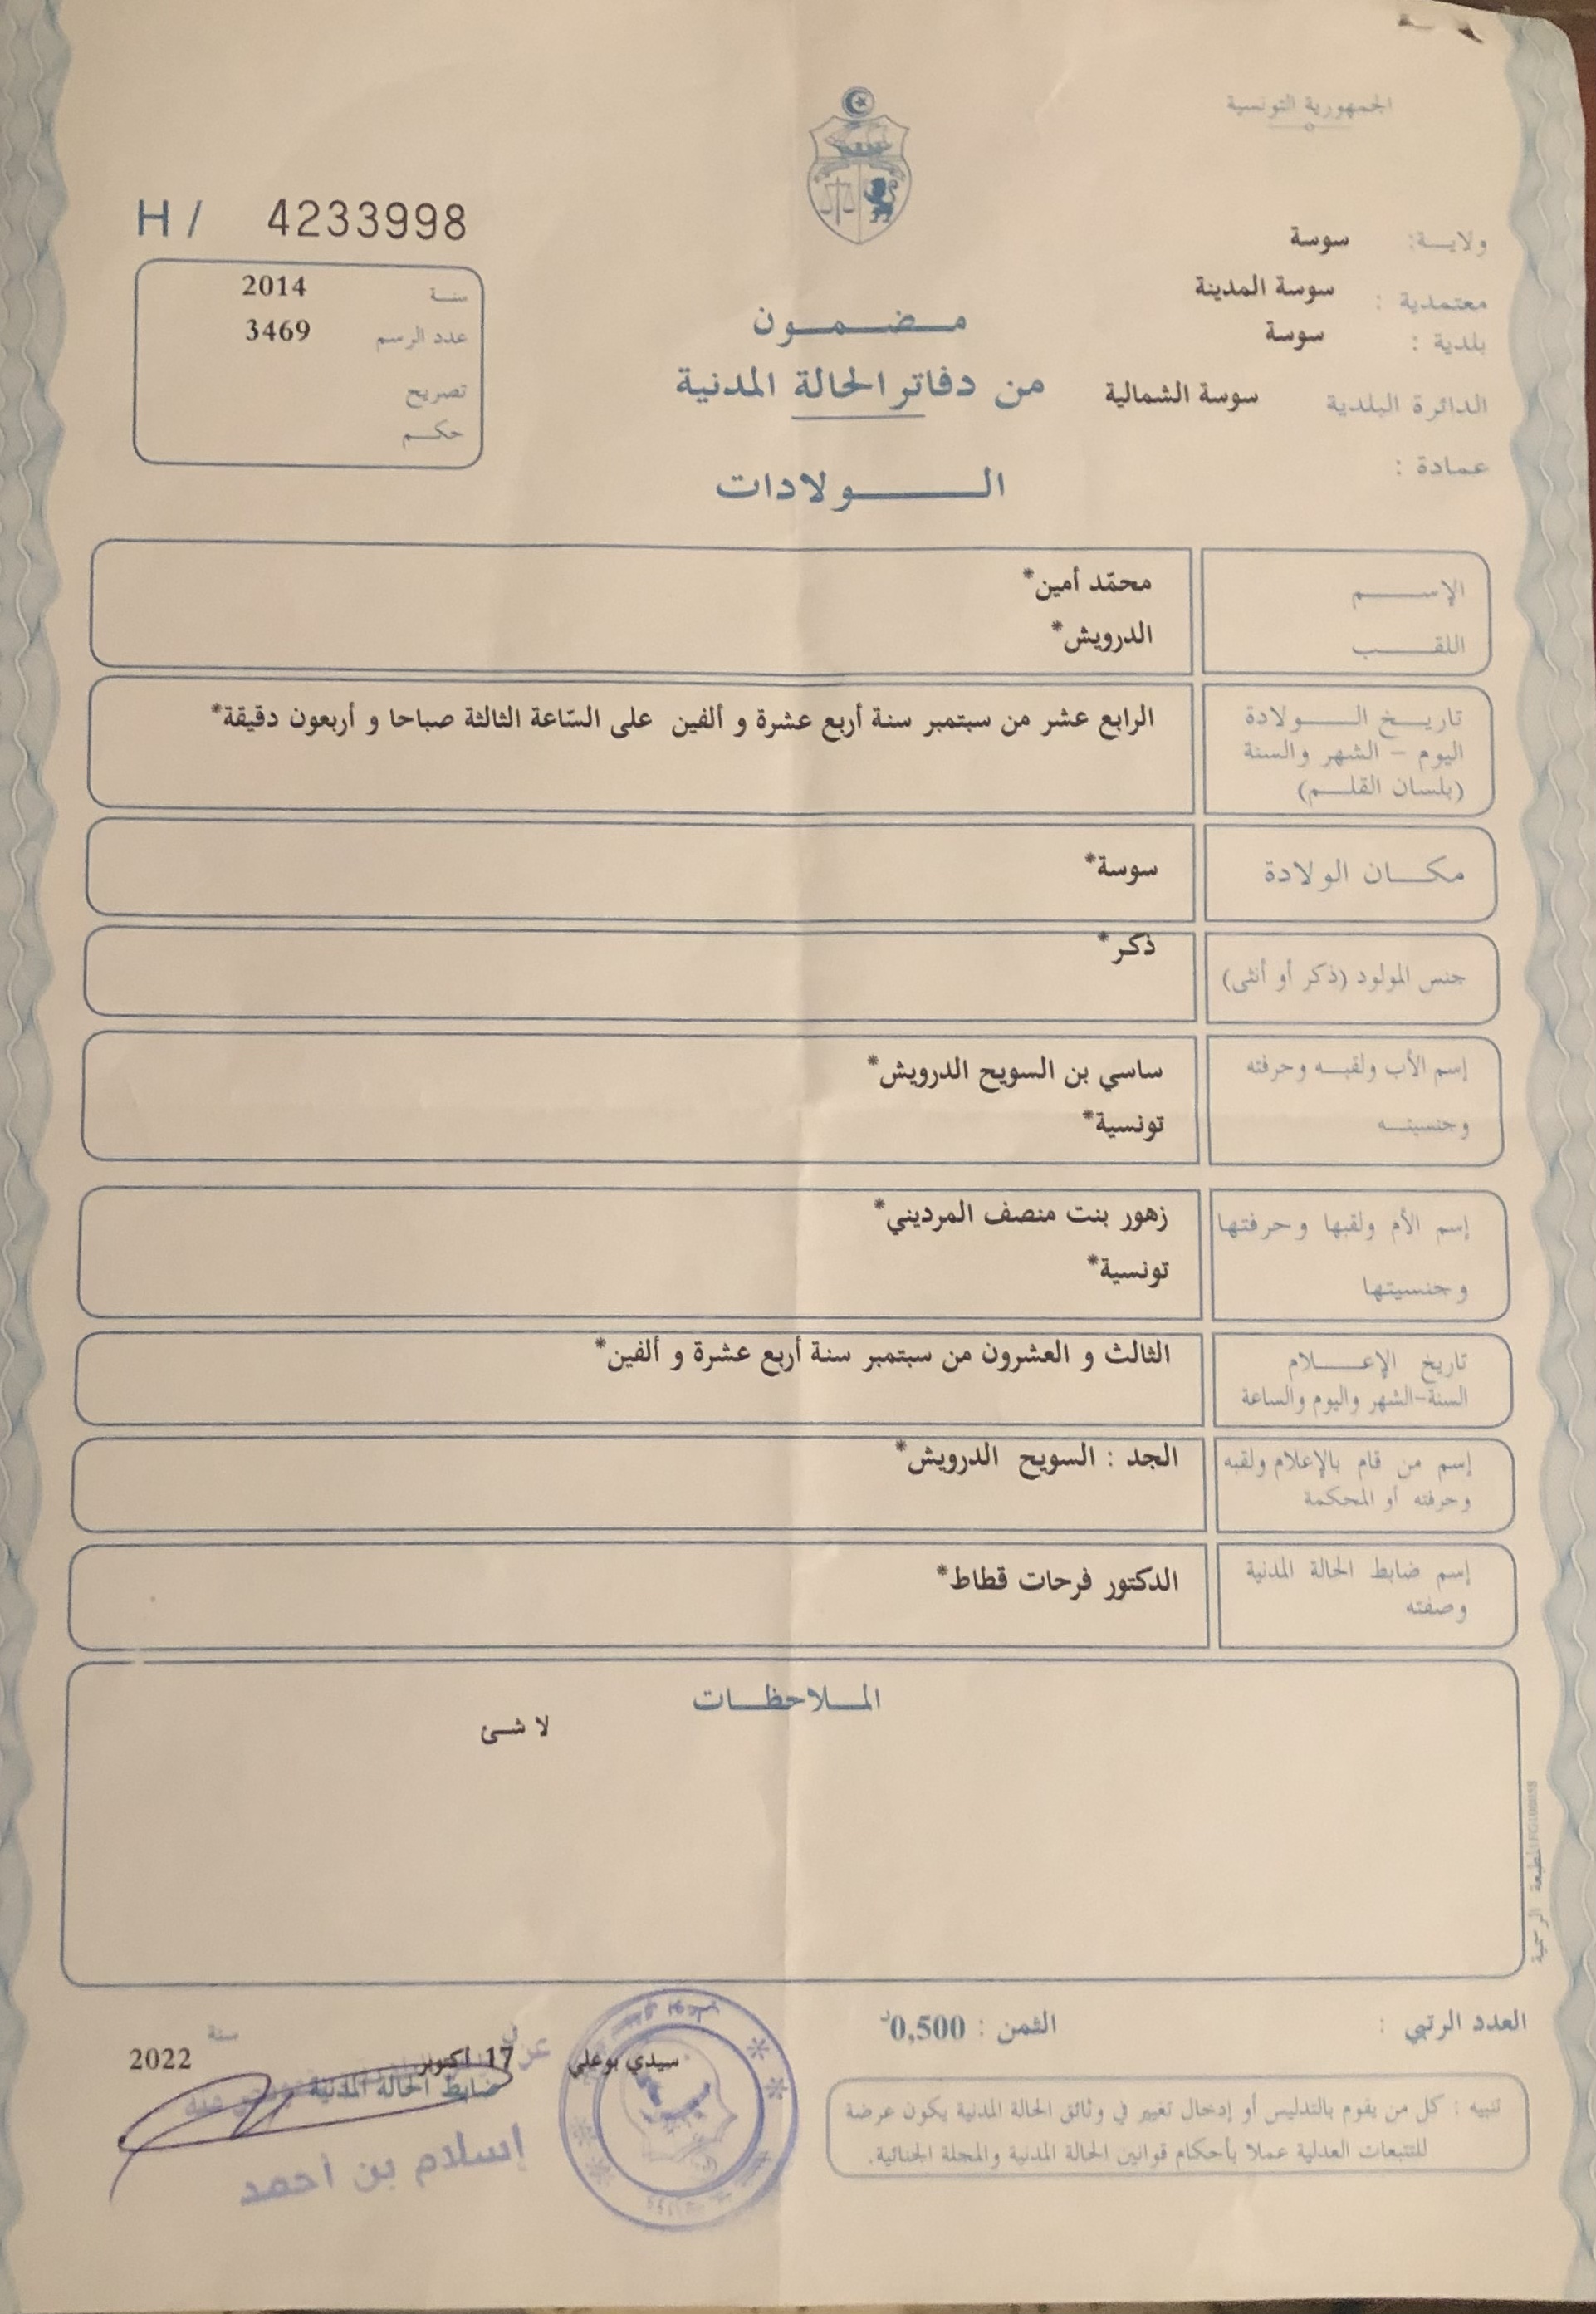 الجمهورية التونسية
ولايـــة: سوسة
معتمدية : سوسة المدينة
بلدية : سوسة
الدائرة البلدية سوسة الشمالية
عمادة :
H / 4233998
سنة 2014
عدد الرسم 3469
تصريح
حكم
مضمون
من دفاتر الحالة المدنية
الولادات
الإسم محمّد أمين*
اللقب الدرويش*
تاريخ الولادة الرابع عشر من سبتمبر سنة أربع عشرة و ألفين على السّاعة الثالثة صباحا و أربعون دقيقة*
اليوم - الشهر والسنة
(بلسان القلم)
مكان الولادة سوسة*
جنس المولود (ذكر أو أنثى) ذكر*
إسم الأب ولقبه وحرفته ساسي بن السويح الدرويش*
وجنسيته تونسية*
إسم الأم ولقبها وحرفتها زهور بنت منصف المرديني*
وجنسيتها تونسية*
تاريخ الإعلام الثالث و العشرون من سبتمبر سنة أربع عشرة و ألفين*
السنة-الشهر واليوم والساعة
إسم من قام بالإعلام ولقبه الجد : السويح الدرويش*
وحرفته أو المحكمة
إسم ضابط الحالة المدنية الدكتور فرحات قطاط*
وصفته
الملاحظات
لا شئ
المطبعة الرسمية
العدد الرتبي :
الثمن : 0,500د
تنبيه : كل من يقوم بالتدليس أو إدخال تغيير في وثائق الحالة المدنية يكون عرضة
للتتبعات العدلية عملا بأحكام قوانين الحالة المدنية والمجلة الجنائية.
سيدي بوعلي في 17 أكتوبر سنة 2022
ضابط الحالة المدنية
إسلام بن أحمد